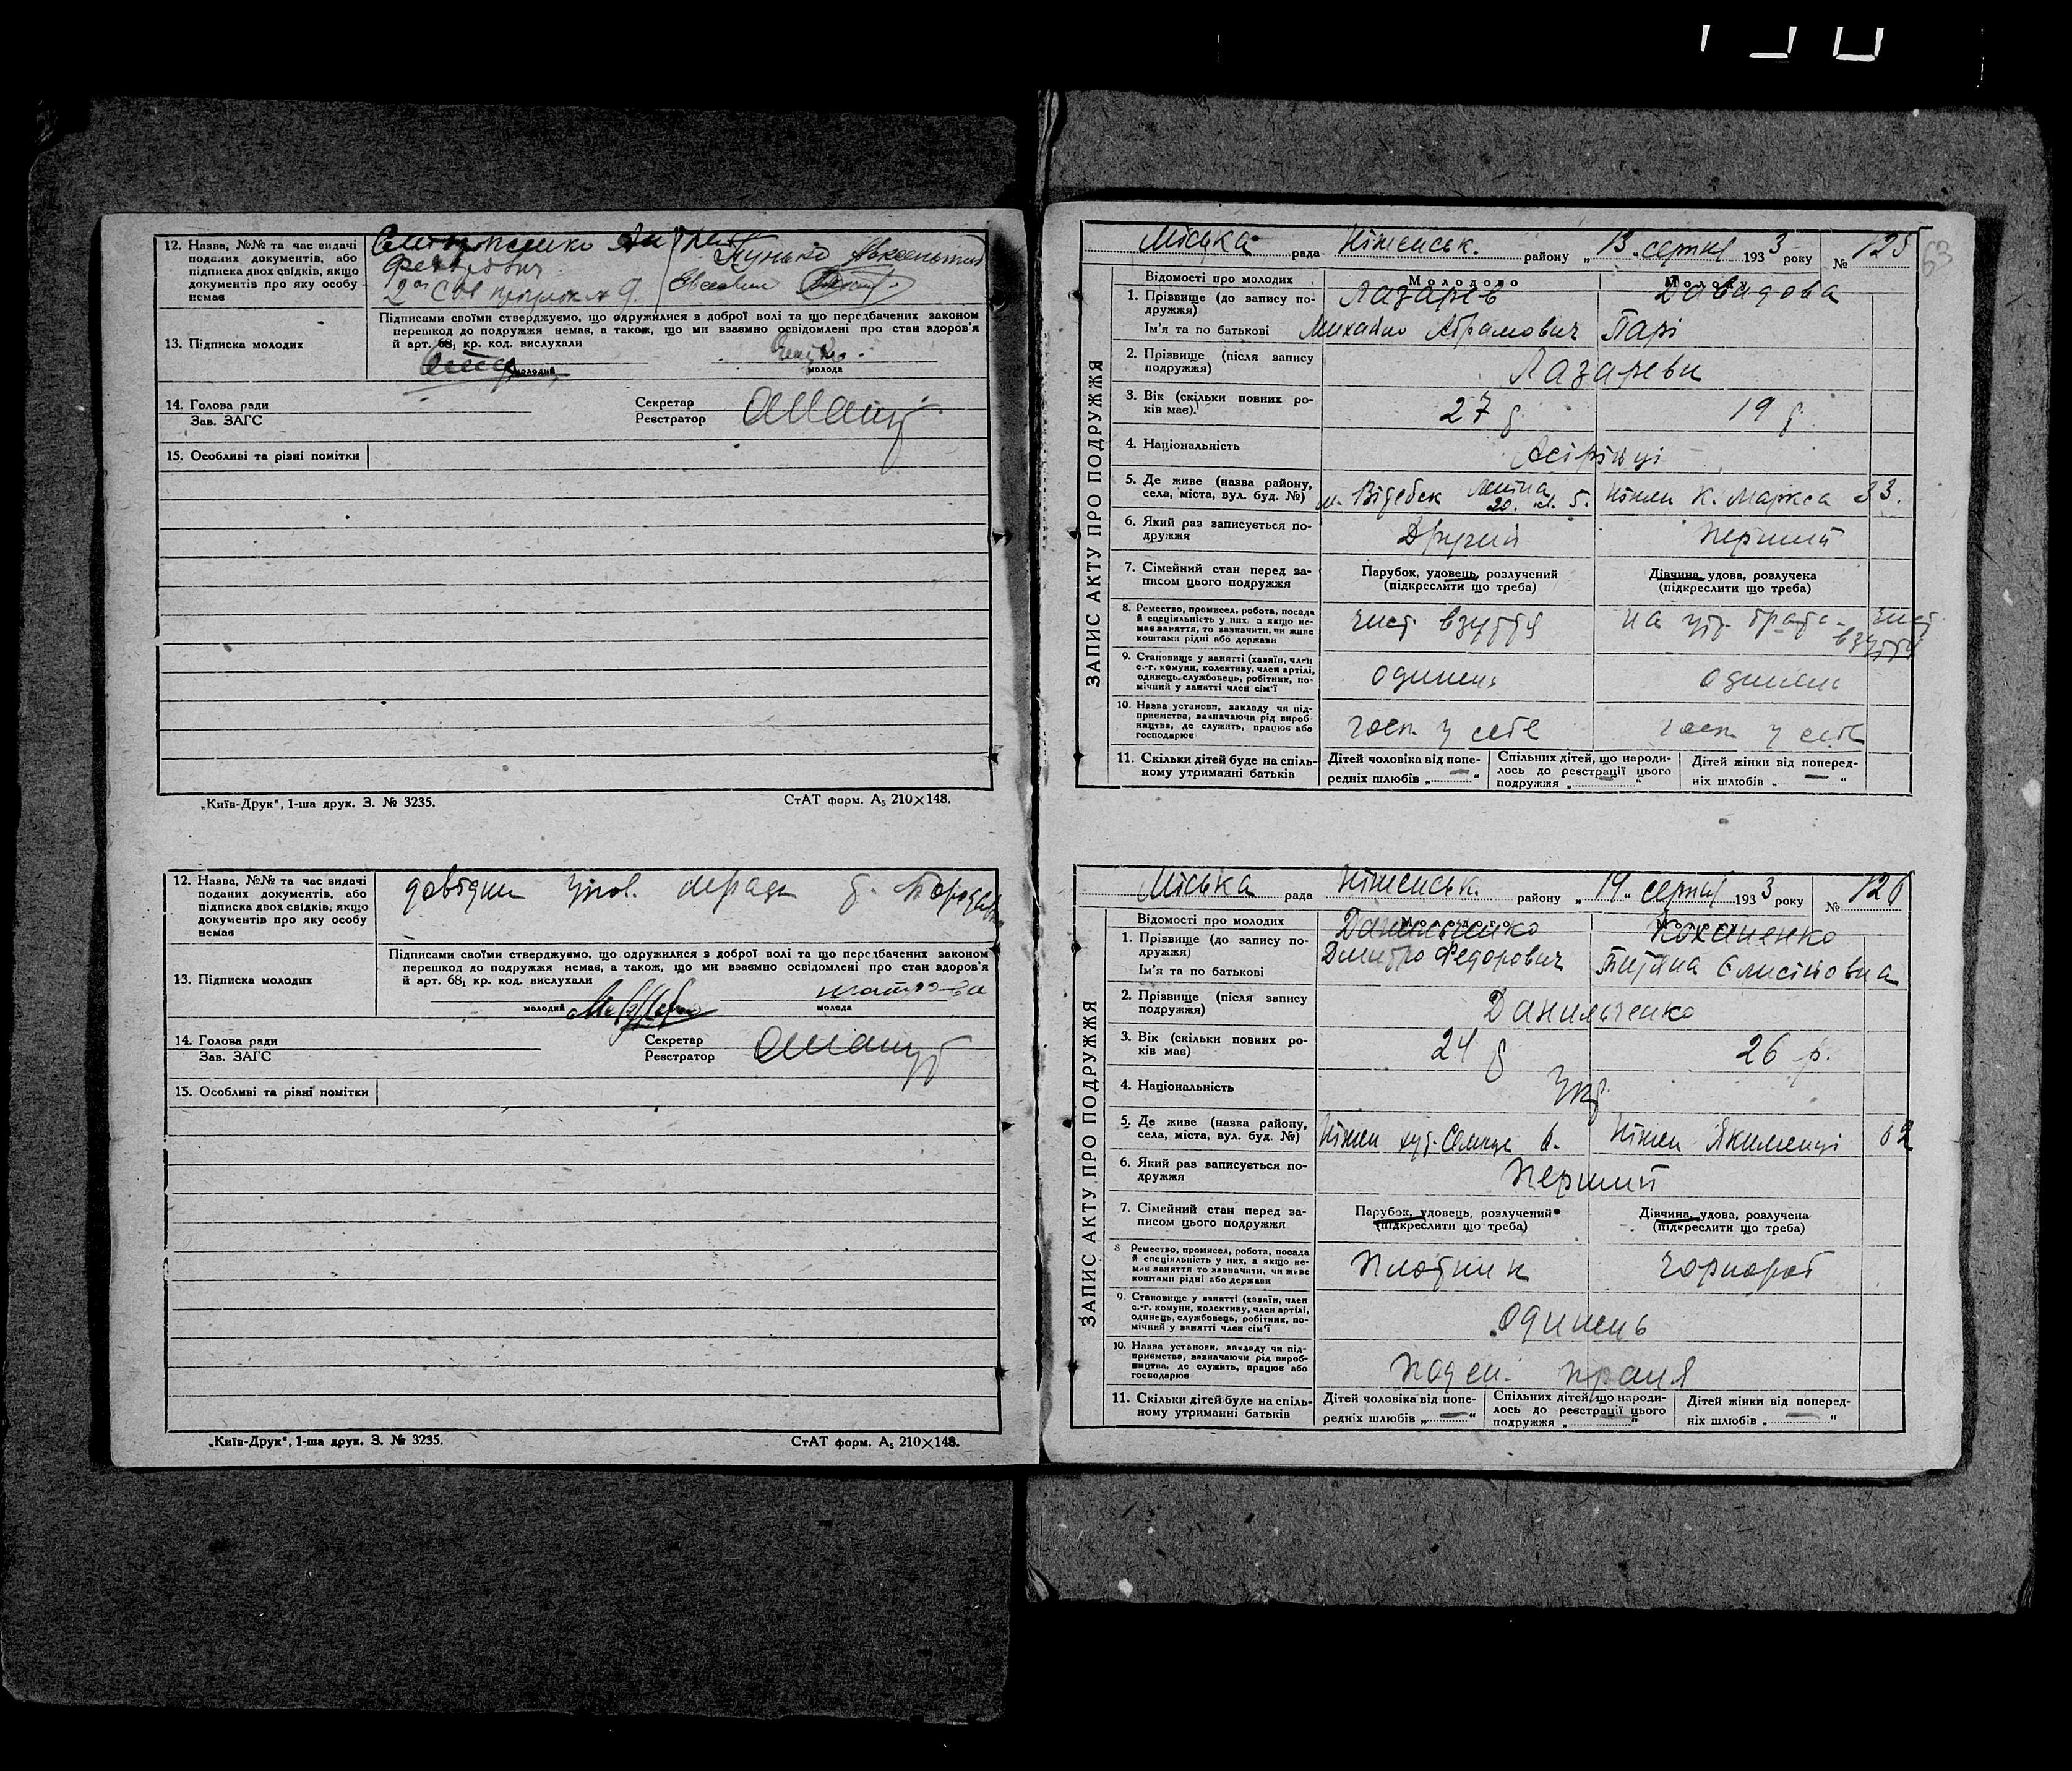 12. Назва, №№ та час видачі
поданих документів, або
підписка двох свідків, якщо
документів про яку особу
немає
Федорович
Підписами своїми стверджуємо, що одружилися з доброї волі та що передбачених законом
перешкод до подружжя немає, а також, що ми взаємно освідомлені про стан здоров'я
й арт. 68₁ кр. код. вислухали
13. Підписка молодих
молодий
молода
14. Голова ради
Зав. ЗАГС
Секретар
Реєстратор
15. Особливі та різні помітки
„Київ-Друк", 1-ша друк. З. № 3235.
СтАТ форм. А₅ 210×148.
12. Назва, №№ та час видачі
поданих документів, або
підписка двох свідків, якщо
документів про яку особу
немає
довідки
Підписами своїми стверджуємо, що одружилися з доброї волі та що передбачених законом
перешкод до подружжя немає, а також, що ми взаємно освідомлені про стан здоров'я
й арт. 68₁ кр. код. вислухали
13. Підписка молодих
молодий
молода
14. Голова ради
Зав. ЗАГС
Секретар
Реєстратор
15. Особливі та різні помітки
„Київ-Друк", 1-ша друк. З. № 3235.
СтАТ форм. А₅ 210×148.
63
ЗАПИС АКТУ ПРО ПОДРУЖЖЯ
Міська рада Ніженськ. району „13„ серпня 1933 року № 125
Відомості про молодих Молодого Молодої
1. Прізвище (до запису подружжя) Лазарев Давидова
Ім'я та по батькові Михайло Абрамович Парі
2. Прізвище (після запису подружжя) Лазареви
3. Вік (скільки повних років має). 27 р. 19 р.
4. Національність Асірійці
5. Де живе (назва району, села, міста, вул. буд. №) м. Вітебск Леніна 20. кв. 5. Ніжен К. Маркса 33.
6. Який раз записується подружжя Другий Перший
7. Сімейний стан перед записом цього подружжя Парубок, удовець, розлучений (підкреслити що треба) Дівчина, удова, розлучена (підкреслити що треба)
8. Ремество, промисел, робота, посада й спеціяльність у них, а якщо немає заняття, то зазначити, чи живе коштами рідні або держави чист. взуття на утр. брата - чист. взуття
9. Становище у занятті (хазяїн, член с.-г. комуни, колективу, член артілі, одинець, службовець, робітник, помічний у занятті член сім'ї одинець одинець
10. Назва установи, закладу чи підприємства, зазначаючи рід виробництва, де служить, працює або господарює госп. у себе госп. у себе
11. Скільки дітей буде на спільному утриманні батьків Дітей чоловіка від попередніх шлюбів „ — " Спільних дітей, що народилось до реєстрації цього подружжя „ " Дітей жінки від попередніх шлюбів „ — "
ЗАПИС АКТУ ПРО ПОДРУЖЖЯ
Міська рада Ніженськ. району „19„ серпня 1933 року № 126
Відомості про молодих
1. Прізвище (до запису подружжя) Данильченко Коханенко
Ім'я та по батькові Дмитро Федорович Тетяна Єлисіївна
2. Прізвище (після запису подружжя) Данильченко
3. Вік (скільки повних років має) 24 р 26 р.
4. Національність Укр.
5. Де живе (назва району, села, міста, вул. буд. №) Ніжен хут. 6. Ніжен Якименці 62
6. Який раз записується подружжя Перший
7. Сімейний стан перед записом цього подружжя Парубок, удовець, розлучений (підкреслити що треба) Дівчина, удова, розлучена (підкреслити що треба)
8 Ремество, промисел, робота, посада й спеціяльність у них, а якщо немає заняття то зазначити, чи живе коштами рідні або держави Плотник Чорнороб
9. Становище у занятті (хазяїн, член с.-г. комуни, колективу, член артілі, одинець, службовець, робітник, помічний у занятті член сім'ї одинець
10. Назва установи, закладу чи підприємства, зазначаючи рід виробництва, де служить, працює або господарює Поден. праця
11. Скільки дітей буде на спільному утриманні батьків Дітей чоловіка від попередніх шлюбів „ — " Спільних дітей, що народилось до реєстрації цього подружжя „ — " Дітей жінки від попередніх шлюбів „ — "